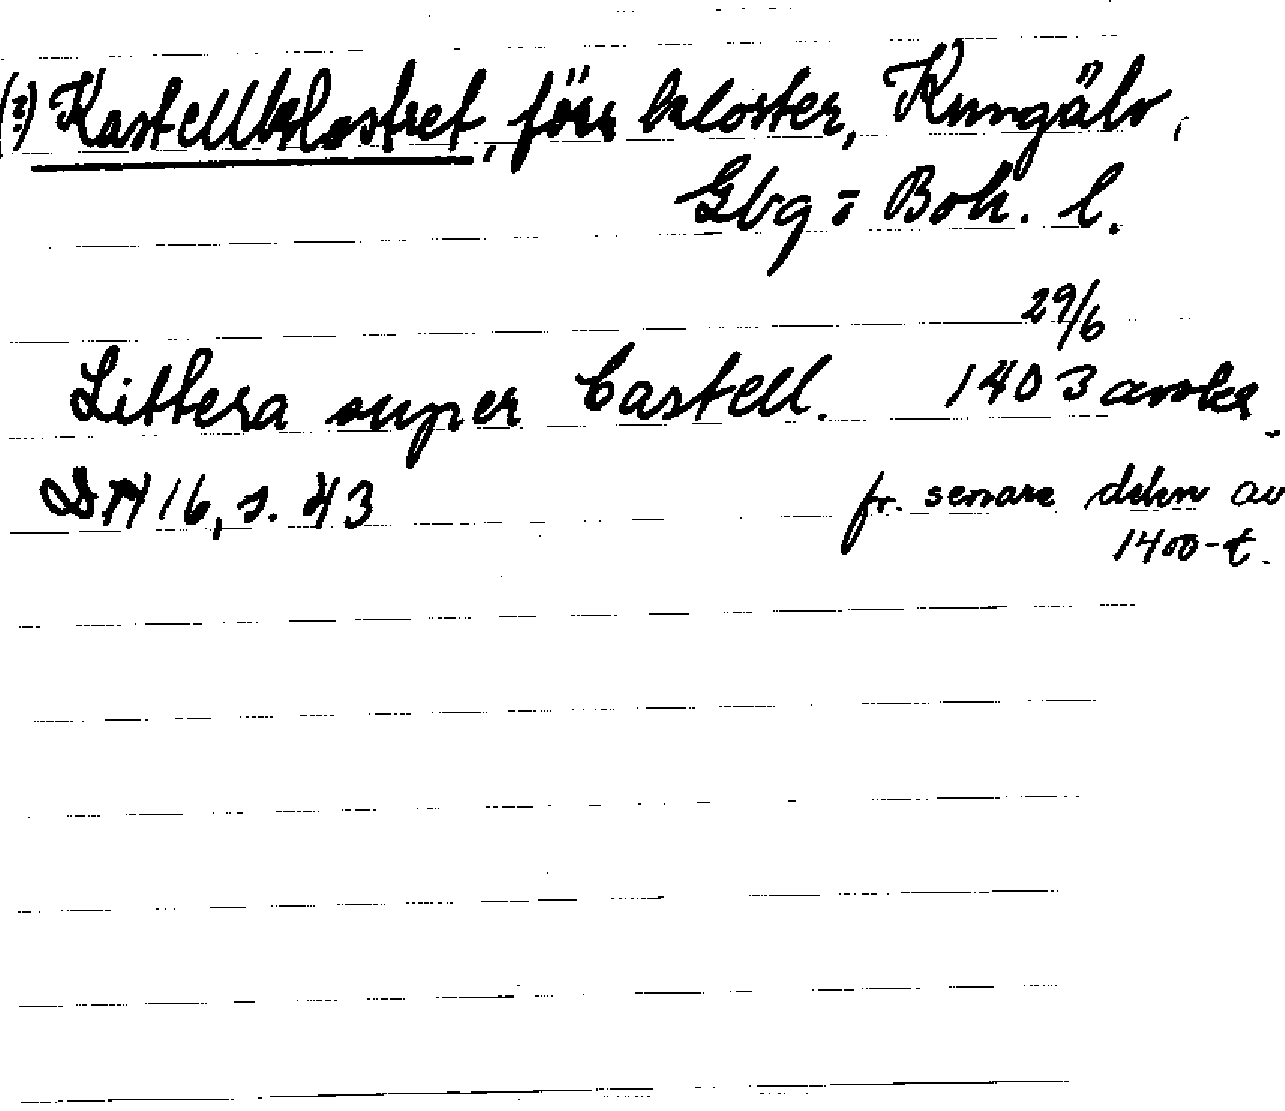 (?) Kastellklostret, förr kloster, Kungälv,
Gbg = Boh. l.
29/6
Littera super Castell. 1403 avskr.
DN 16, s. 43 fr. senare delen av
1400-t.